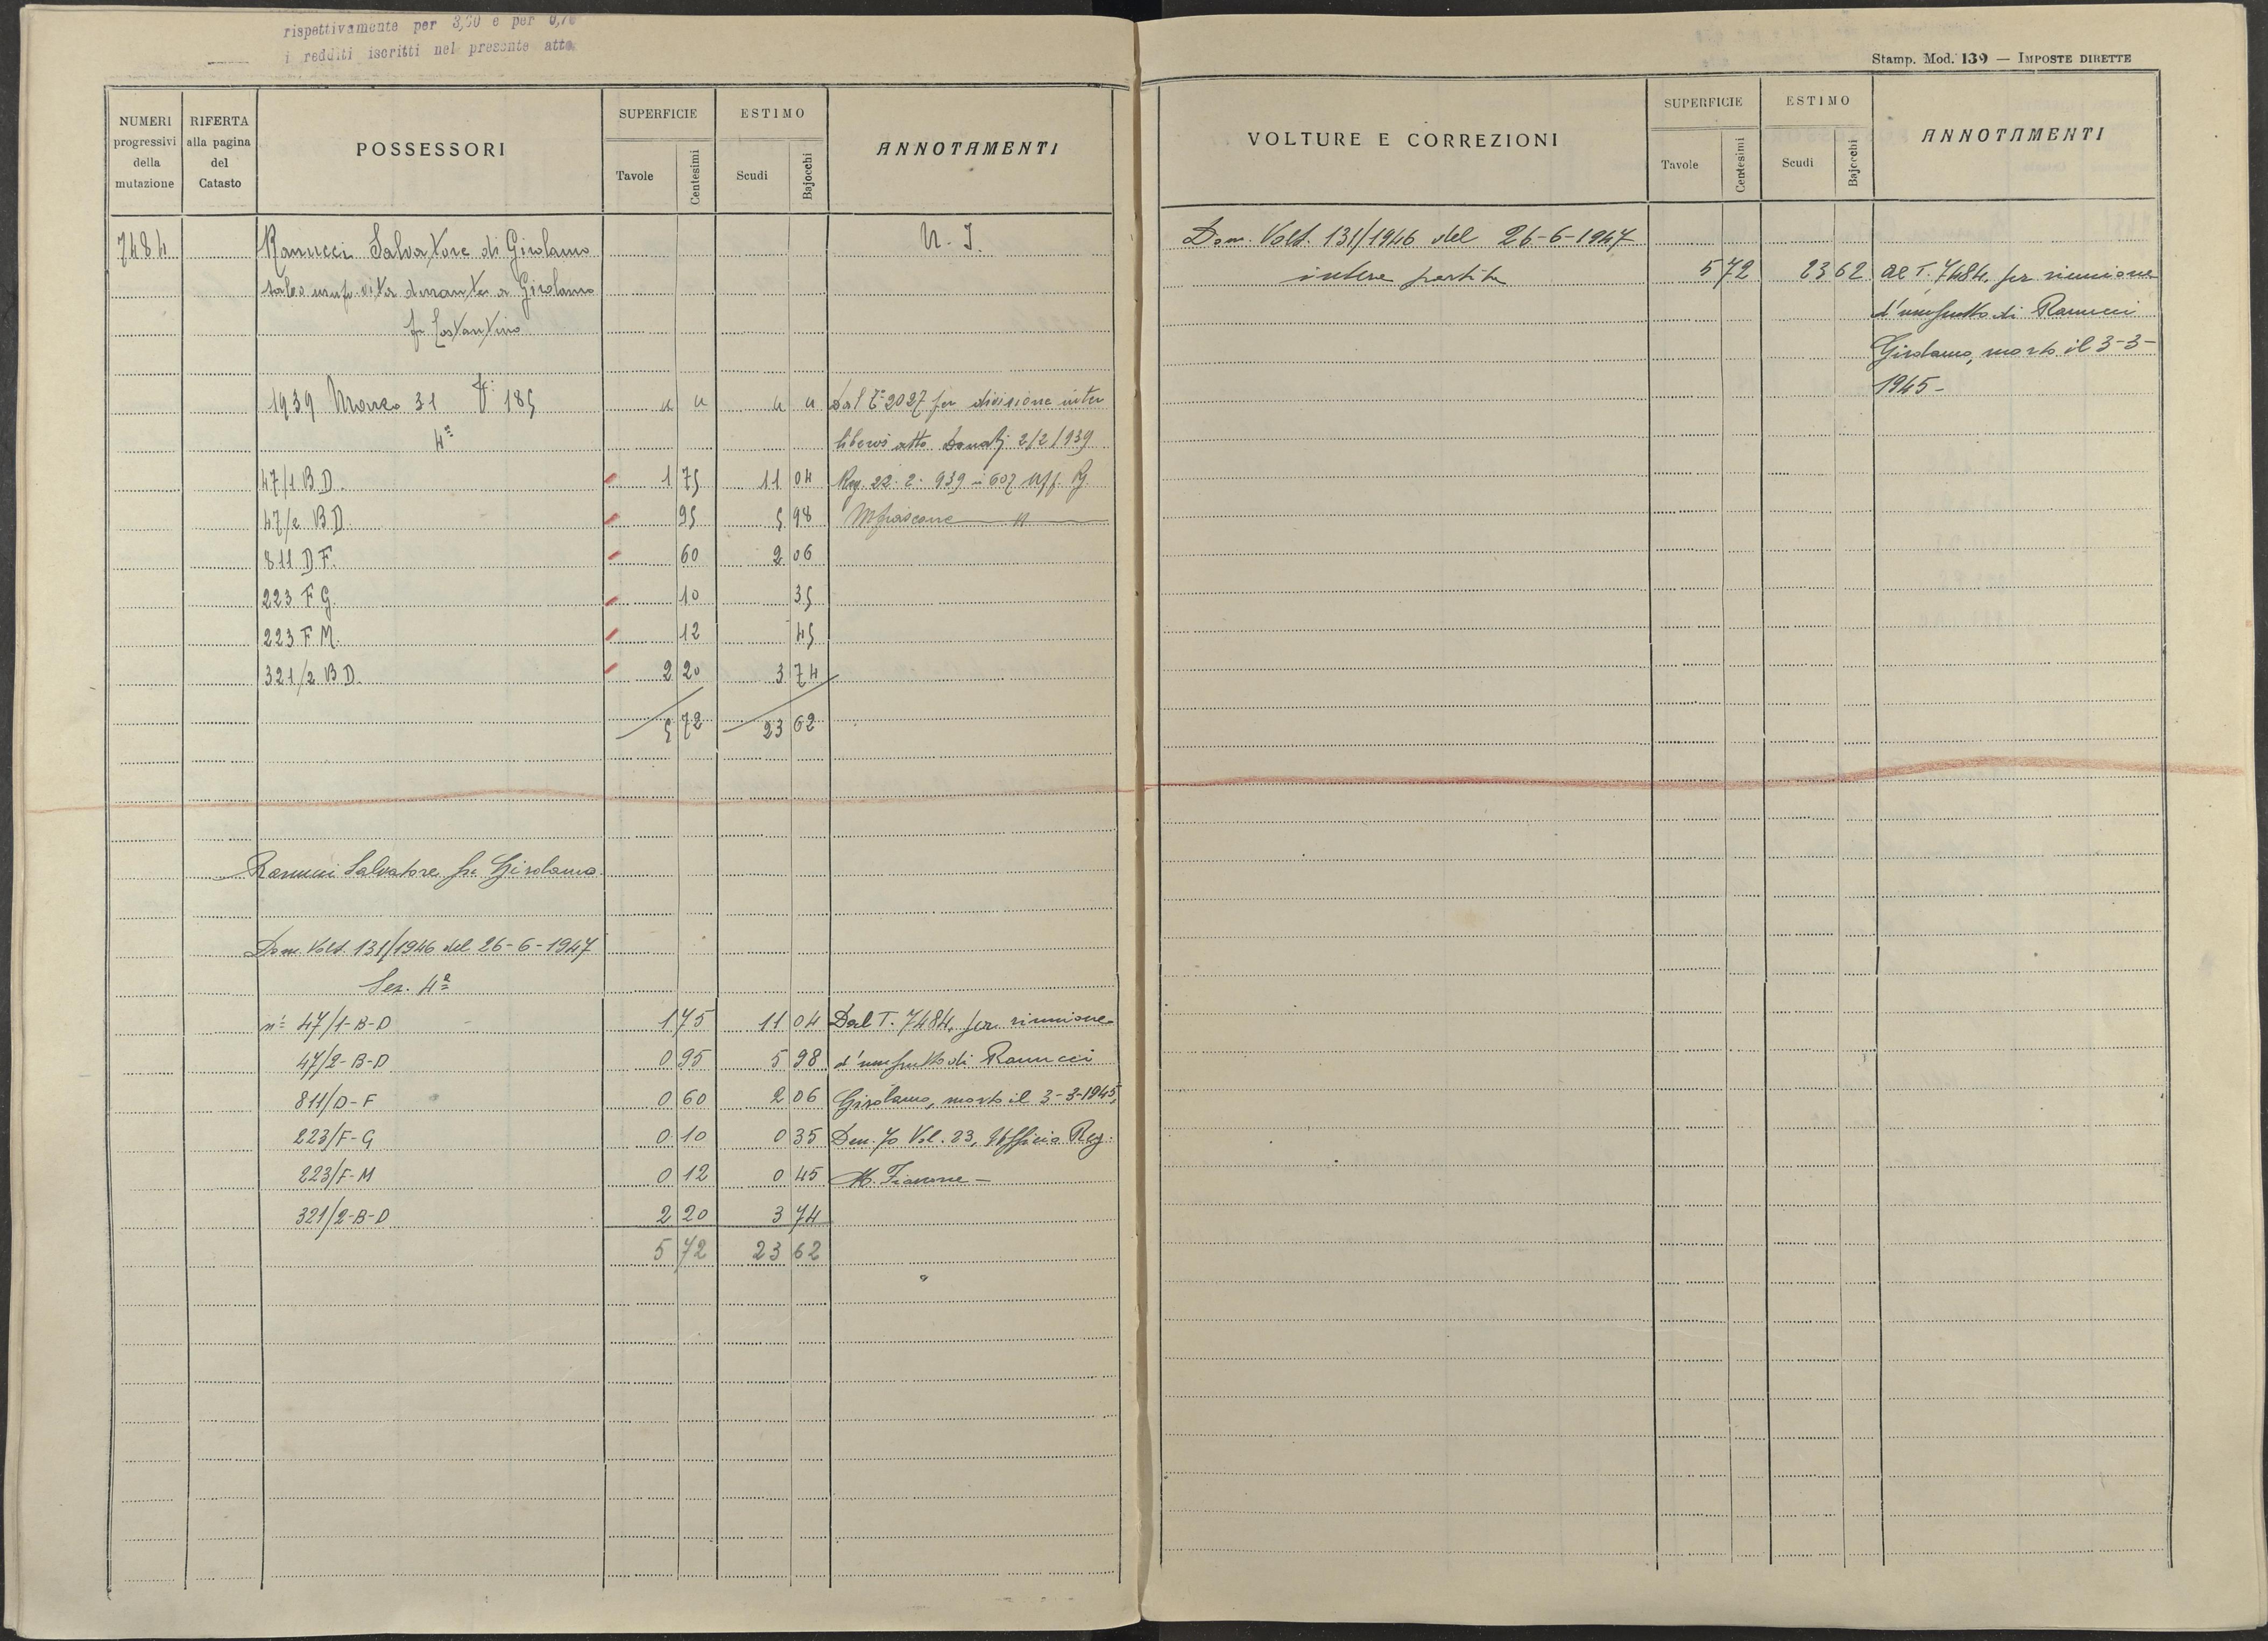 rispettivamente per 3,50 e per 0,70
i redditi iscritti nel presente atto
NUMERI progressivi della mutazione
RIFERTA alla pagina del Catasto
POSSESSORI
SUPERFICIE
Tavole Centesimi
ESTIMO
Scudi Bajocchi
ANNOTAMENTI
7484 Ranucci Salvatore di Girolamo U. I.
salvo usuf. vita durante a Girolamo
fu Costantino
1939 Marzo 31 V: 185 " " " " Dal T. 2027 per divisione inter
4ª liberos atto Donati 2/2/939
47/1 B D. 1 75 11 04 Reg. 22. 2. 939 n 607 Uff. Rg.
47/2 B D. 95 5 98 Mfiascone "
811 D F. 60 2 06
223 F G. 10 35
223 F M. 12 45
321/2 B D. 2 20 3 74
5 72 23 62
Ranucci Salvatore fu Girolamo
Dom. Volt. 131/1946 del 26-6-1947
Sez. 4ª
n° 47/1-B-D 1 75 11 04 Dal T. 7484, per riunione
47/2-B-D 0 95 5 98 d'usufrutto di Ranucci
811/D-F 0 60 2 06 Girolamo, morto il 3-3-1945,
223/F-G 0 10 0 35 Den. 70 Vol. 23, Ufficio Reg.
223/F-M 0 12 0 45 M. Fiascone -
321/2-B-D 2 20 3 74
5 72 23 62
Stamp. Mod. 139 — IMPOSTE DIRETTE
VOLTURE E CORREZIONI
SUPERFICIE
Tavole Centesimi
ESTIMO
Scudi Bajocchi
ANNOTAMENTI
Dom. Volt. 131/1946 del 26-6-1947
intera partita 5 72 23 62 al T. 7484, per riunione
d'usufrutto di Ranucci
Girolamo, morto il 3-3-
1945-